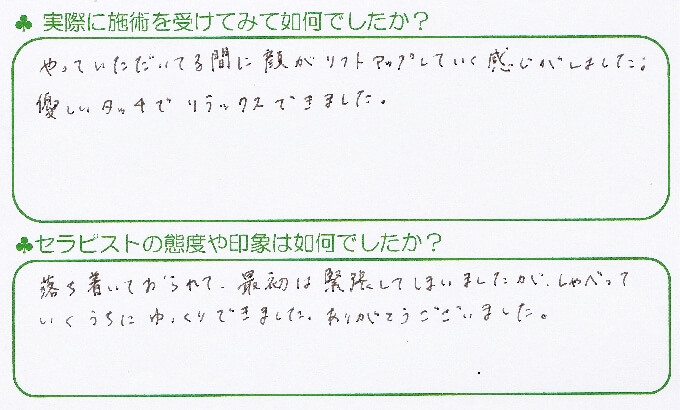 ♣ 実際に施術を受けてみて如何でしたか？
やっていただいてる間に顔がリフトアップしていく感じがしました。
優しいタッチでリラックスできました。
♣セラピストの態度や印象は如何でしたか？
落ち着いておられて、最初は緊張してしまいましたが、しゃべって
いくうちにゆっくりできました。ありがとうございました。